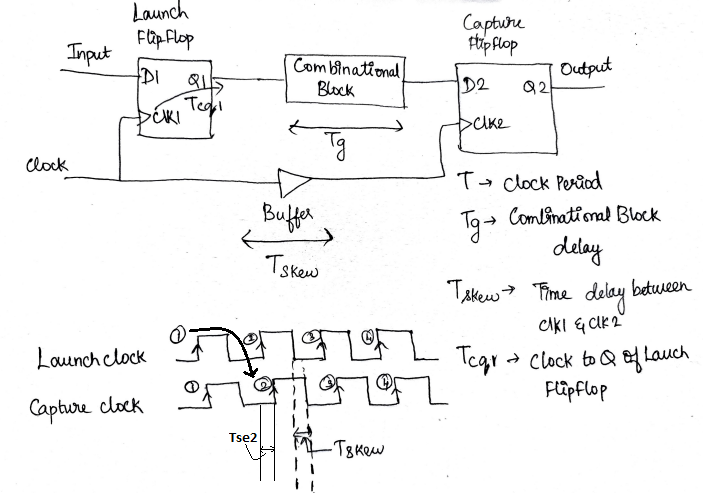 Launch
FlipFlop
Capture
FlipFlop
Input
D1
Q1
Combinational
Block
D2
Q2
Output
Tcq1
Clk1
Clk2
Tg
Clock
Buffer
Tskew
T → Clock Period
Tg → Combinational Block
delay
Tskew → Time delay between
Clk1 & Clk2
Tcq,r → Clock to Q of Lauch
FlipFlop
① ② ③ ④
Launch clock
① ② ③ ④
Capture clock
Tse2
Tskew